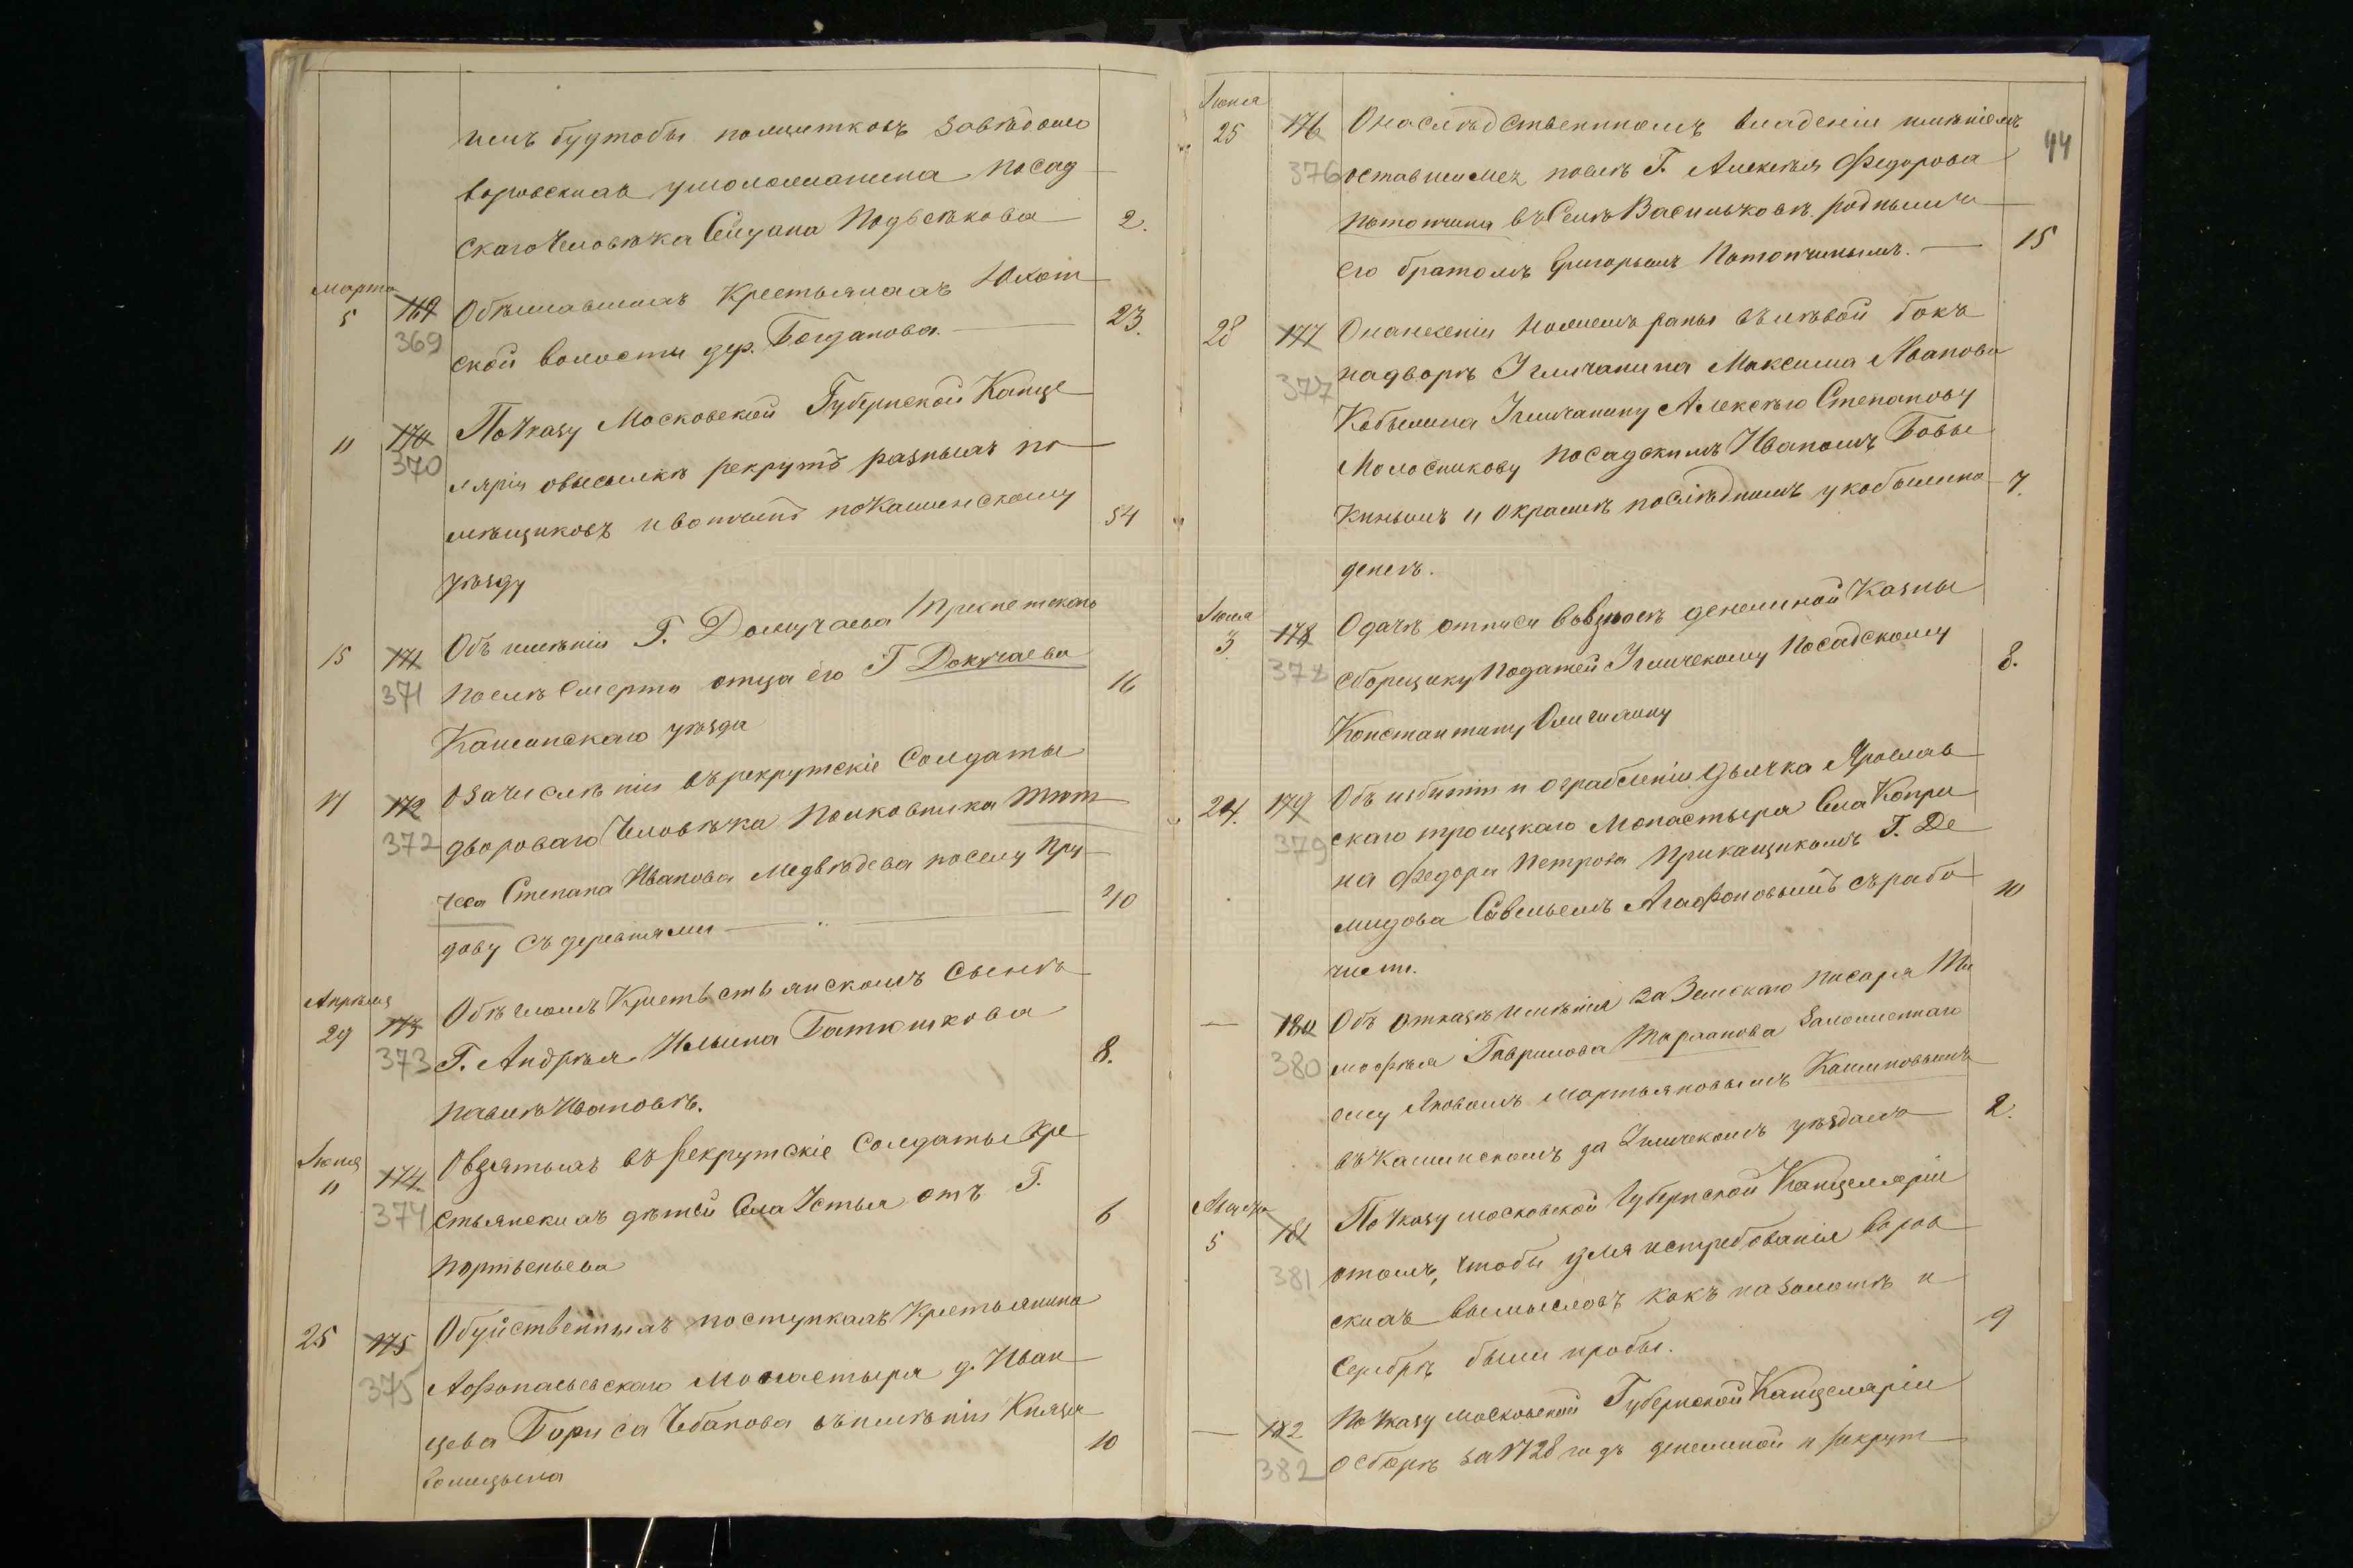 имъ будтобы пожитковъ завѣдомо
воровскихъ умоложанина посад
скаго Человѣка Сидана Подвѣкова 2.
Марта
5 169 Обѣжавшихъ Крестьянахъ Юхот
369 ской волости дер. Богданова. 23.
11 170 По Указу Московской Губернской Канце
370 ляріи овысылкѣ рекрутъ разныхъ по
мѣщиковъ и вотчинъ по Кашинскому 54
уѣзду
15 171 Объ имѣніи Г. Докучаева
371 послѣ Смерти отца его Г Докучаева 16
Кашинскаго уѣзда
17 172 О зачисленіи въ рекрутскіе Солдаты
372 двороваго Человѣка Полковника Тют
чева Степана Иванова Медвѣдева поселу Пру
дову съ деревнями 40
Апрѣля
29 173 Обѣгломъ Крестьянскомъ Сынѣ
373 Г. Андрѣя Ильина Батюшкова 8.
павлѣ Ивановѣ.
Іюня
11 174 О взятыхъ въ рекрутскіе Солдаты Кре
374 стьянскихъ дѣтей Села Устья отъ Г. 6
25 175 О буйственныхъ поступкахъ Крестьянина
375 Афонасьевскаго Монастыря д. Иван
цева Бориса Чебакова въимѣніи Князя 10
Голицына
44
Іюня
25 176 О наслѣдственномъ владѣніи имѣніемъ
376 оставшимся послѣ Г. Алексѣя Федорова
Потопчина въ Селѣ Васильковѣ роднымъ
его братомъ Григорьемъ Потопчинымъ. 15
28 177 О нанесеніи Ножемъ раны въ лѣвой бокъ
377 надворѣ Угличанина Максима Иванова
Кобылина Угличанину Алексѣю Степанову
Молосникову посадскимъ Иваномъ Бовы
кинымъ и окражѣ послѣднимъ у кобылина 7.
денегъ.
Іюля
3 178 О дачѣ отписи вовзносѣ денежной Казны
378 сборщику Податей Угличскому Посадскому 8.
Константину
24. 179 Объ избитіи и ограбленіи Дьячка Ярослав
379 скаго троицкаго Монастыря Села Копри
на Федора Петрова Прикащикомъ Г. Де
мидова Савельемъ Агафоновымъ съ рабо 10
чими.
— 180 Объ отказѣ имѣнія за Земскаго писаря Ти
380 мофѣя Гаврилова заложеннаго
ему Яковомъ Мартьяновымъ Кашиновымъ
въ Кашинскомъ да Угличскомъ уѣздахъ 2.
5 181 По Указу Московской Губернской Канцеляріи
381 отомъ, Чтобы для истребованія воров
скихъ вымысловъ какъ на золотѣ и
Серебрѣ были пробы. 9
— 182 По Указу Московской Губернской Канцеляріи
382 О сборѣ за 1728 годъ денежной и рекрут